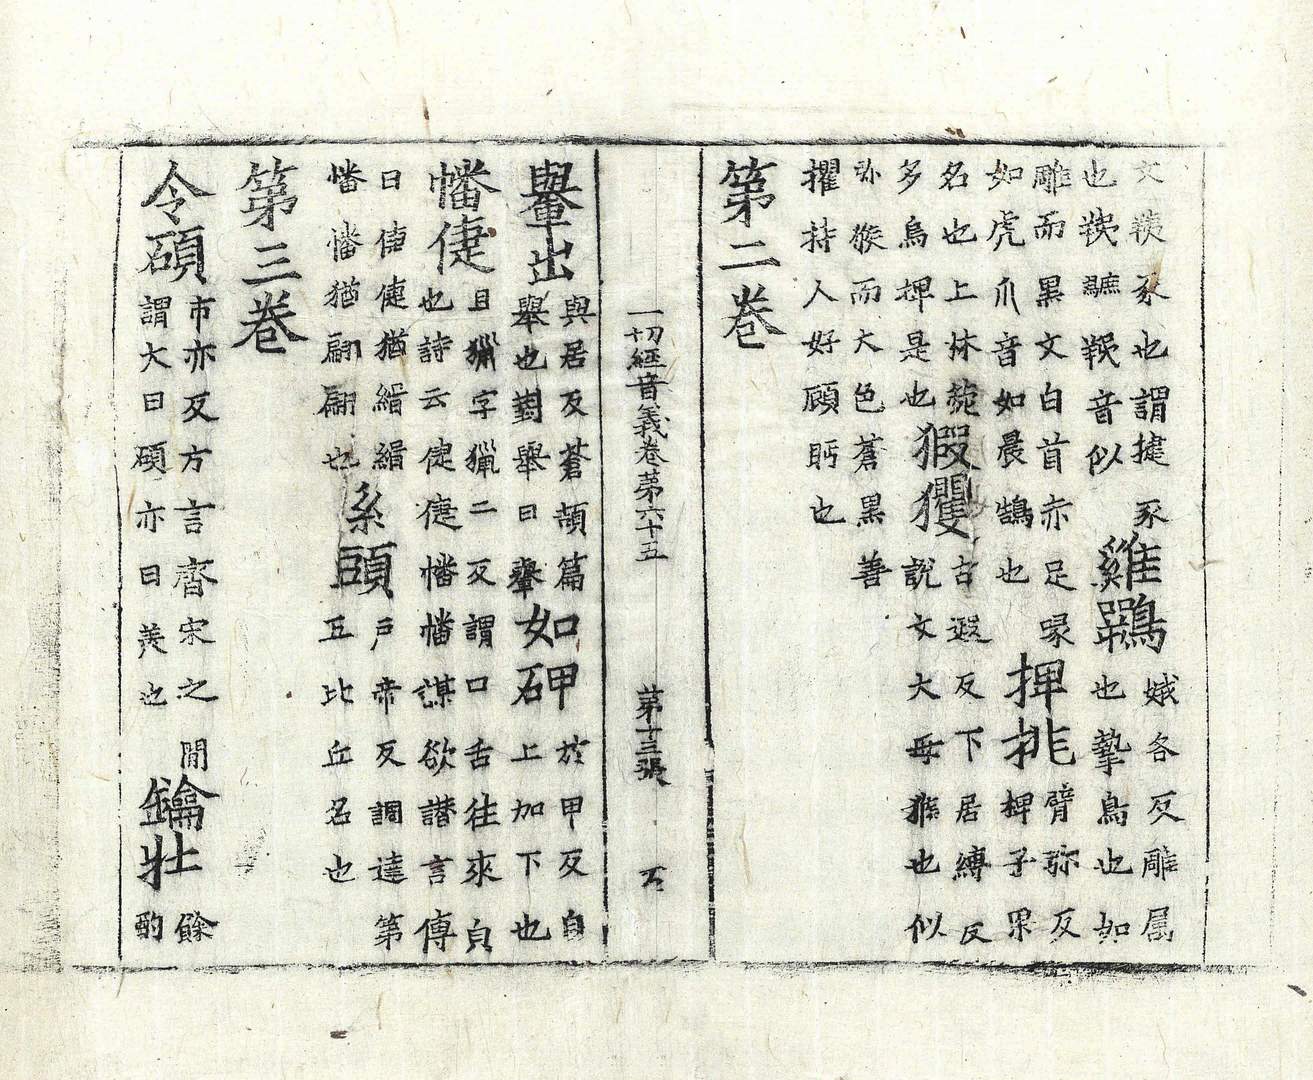 文𤟎豕也謂㨗豕
也𤟎䗪𤟎音似
雞鶚
娥各反雕属
也摯鳥也如
雕而黒文白首赤足喙
如虎爪音如晨鵠也
捭挑
臂弥反
椑子果
名也上林蓜
多烏椑是也
猳玃
古遐反下居縛反
說文大母猴也似
弥猴而大色蒼黒善
擢持人好顧眄也
第二巻
一切經音義卷苐六十五 苐十三張
轝出
與居反蒼頡篇
舉也對舉曰轝
如砰
於甲反自
上加下也
幡倢
且獵字獵二反謂口舌往來皃
也詩云倢倢幡幡謀欲譖言傳
曰倢倢猶緝緝
幡幡猶翩翩也
系頭
戸帝反調達第
五比丘名也
第三巻
令碩
市亦反方言齊宋之間
謂大曰碩碩亦曰美也
鑰牡
餘
酌